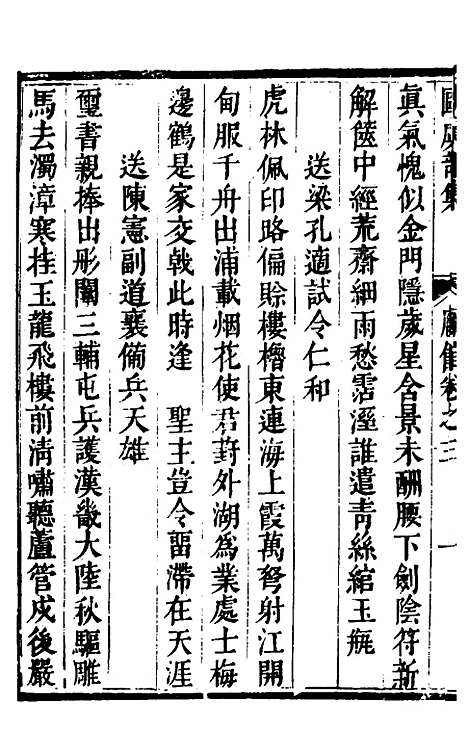 眞氣愧似金門隱歲星含景未酬腰下劍陰符新
解篋中經荒齋細雨愁霑溼誰遣青絲綰玉缾
送梁孔適試令仁和
虎林佩印路偏賒樓櫓東連海上霞萬弩射江開
甸服千舟出浦載烟花使君葑外湖爲業處士梅
邊鶴是家交戟此時逢　聖主豈令畱滯在天涯
送陳憲副道襄備兵天雄
璽書親捧出彤闈三輔屯兵護漢畿大陸秋驅雕
馬去濁漳寒挂玉龍飛樓前清嘯聽蘆管戍後嚴